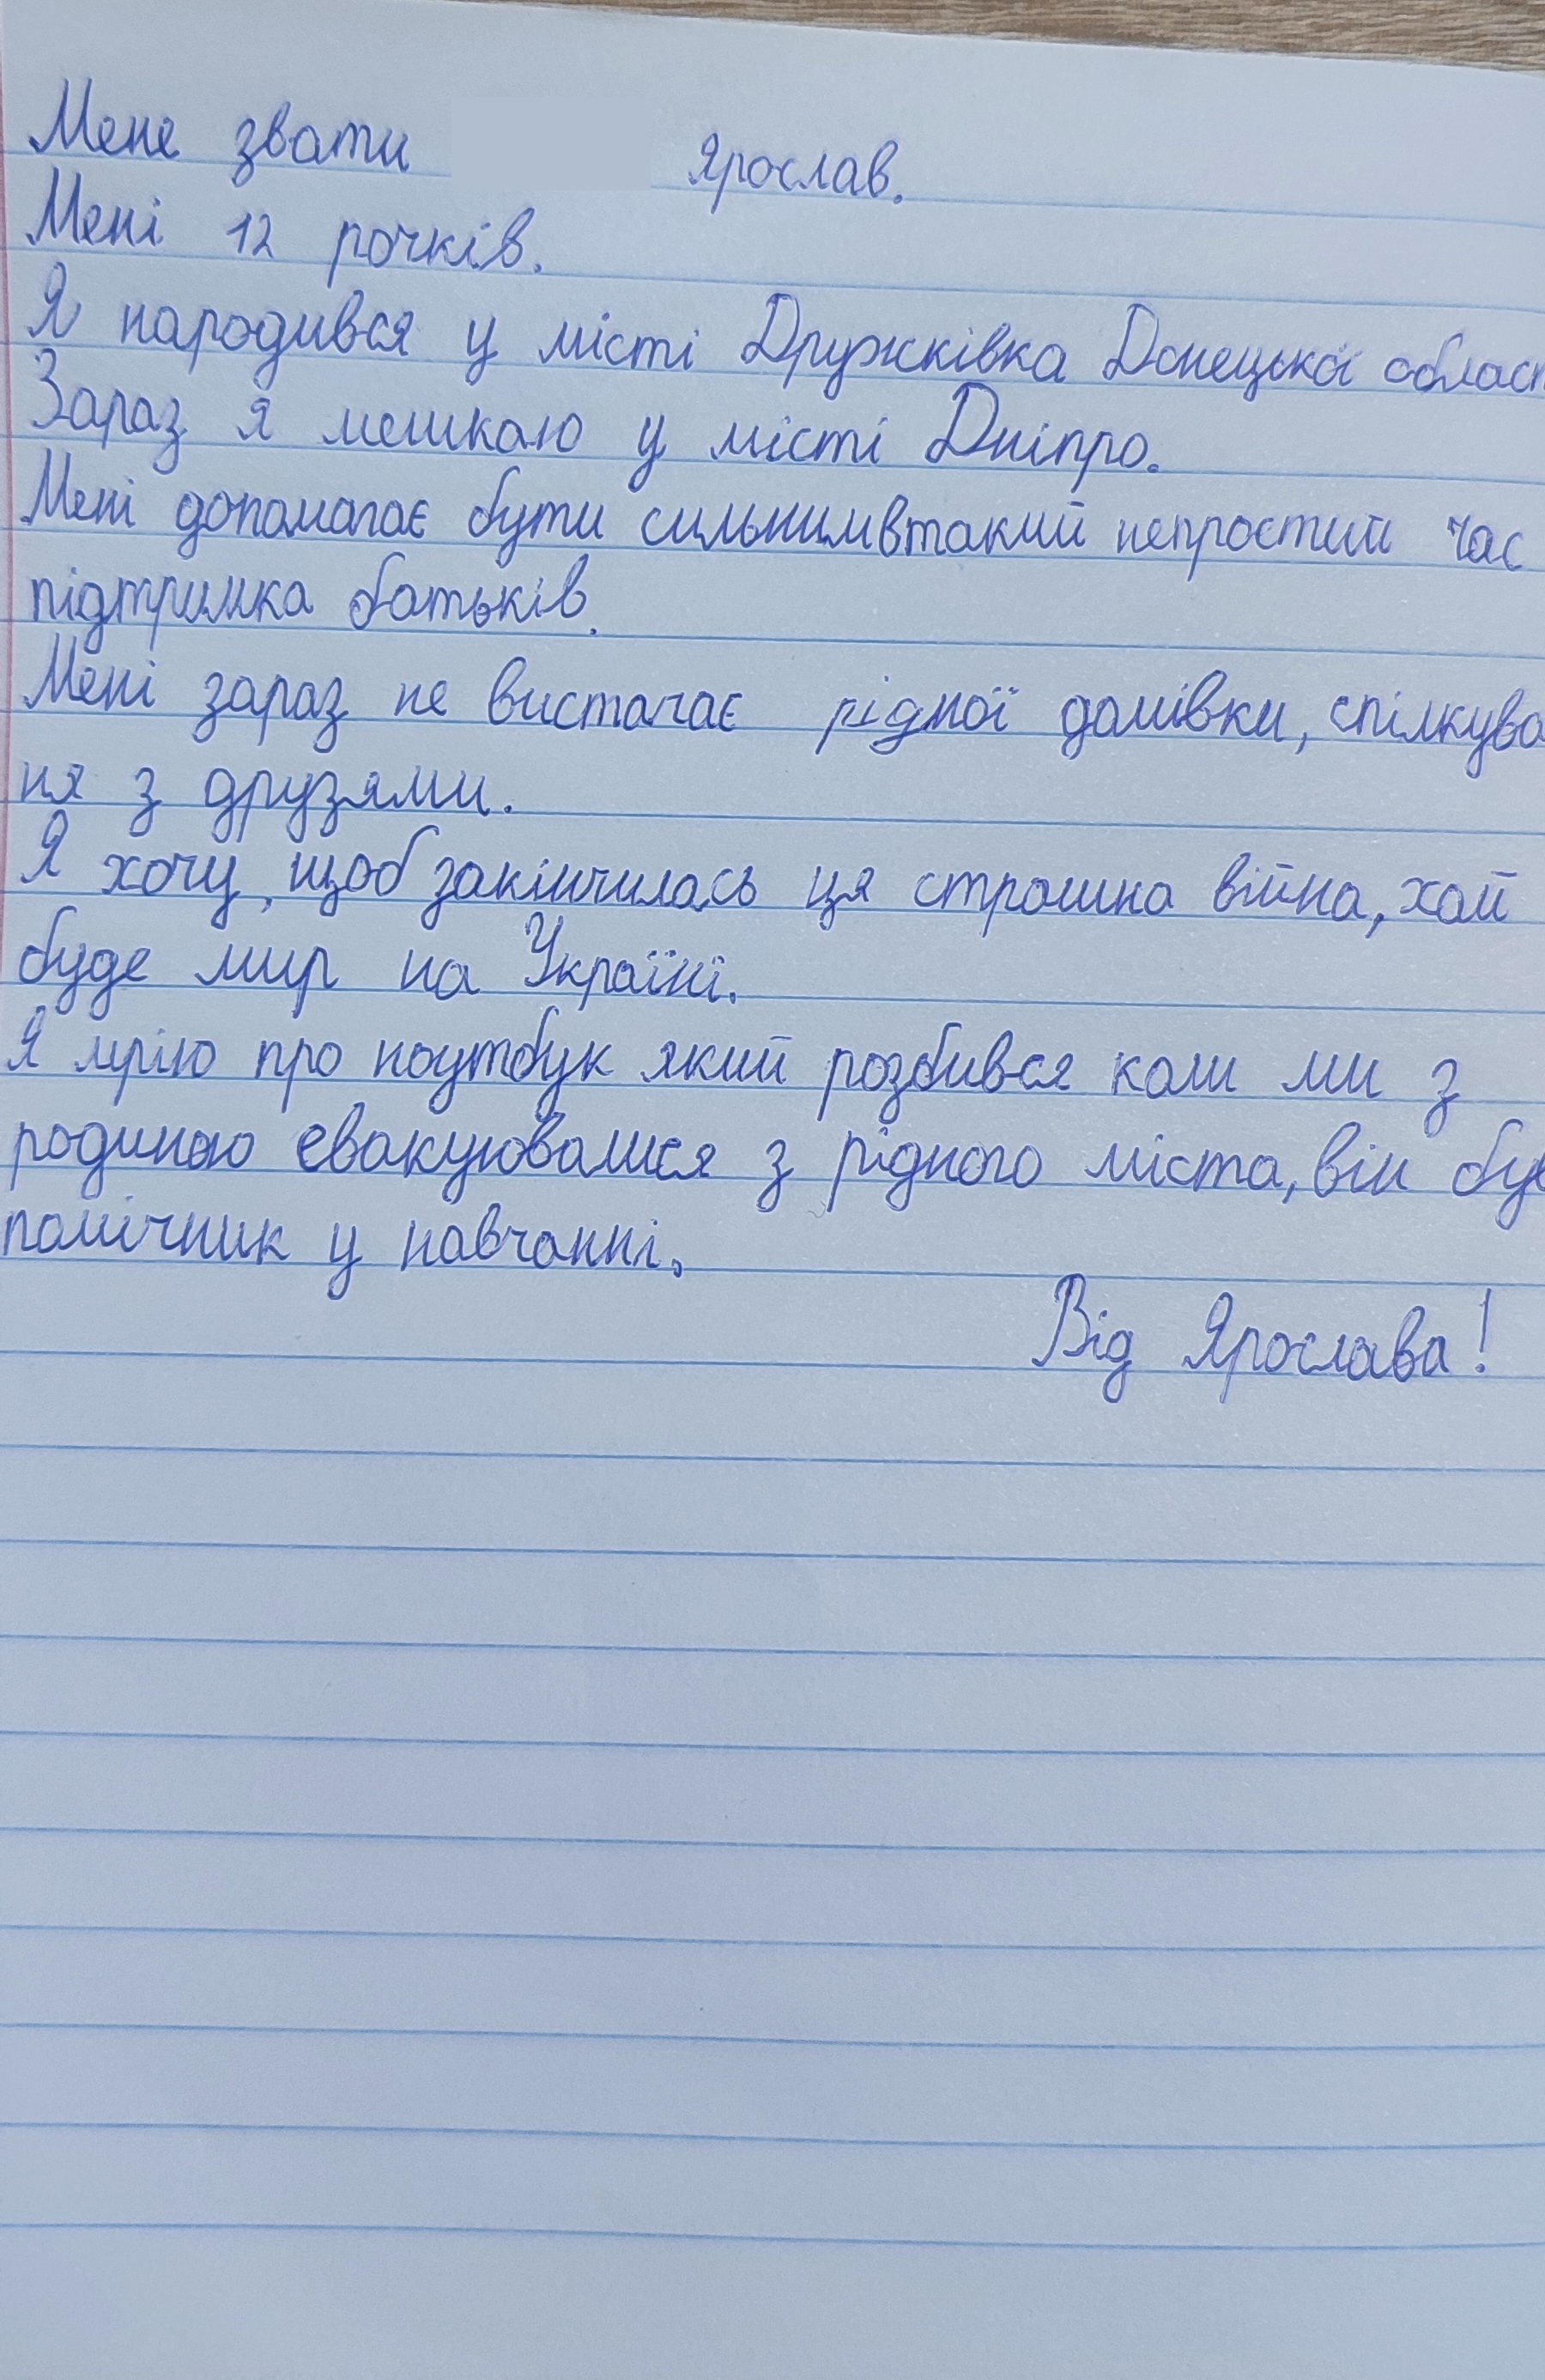 Мене звати Ярослав.
Мені 12 рочків.
Я народився у місті Дружківка Донецької област
Зараз я мешкаю у місті Дніпро.
Мені допомагає бути сильнимвтакий непростий час
підтримка батьків.
Мені зараз не вистачає рідної домівки, спілкува
ня з друзями.
Я хочу, щоб закінчилась ця страшна війна, хай
буде мир на Україні.
Я мрію про ноутбук який розбився коли ми з
родиною евакуювалися з рідного міста, він був
помічник у навчанні.
Від Ярослава!